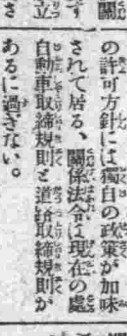 の許可方針には獨自の政策が加味
されて居る、關係法令は現在の處
自動車取締規則と道路取締規則が
あるに過ぎない。